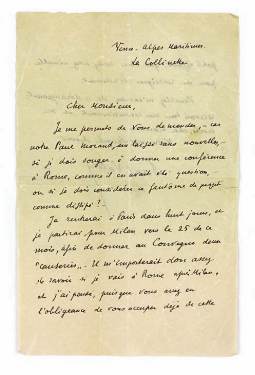 Vence. Alpes Maritimes.
La Collinette
Cher Monsieur,
Je me permets de vous demander, – car
notre Paul Morand me laisse sans nouvelles, –
si je dois songer à donner une conférence
à Rome, comme il en avait été question,
ou si je dois considérer ce fantôme de projet
comme dissipé ?
Je rentrerai à Paris dans huit jours, et
je partirai pour Milan vers le 25 de ce
mois, afin de donner au Convegno deux
"causeries". Il m'importerait donc assez
de savoir si je vais à Rome après Milan,
et j'ai pensé, puisque vous avez eu
l'obligeance de vous occuper déjà de cette